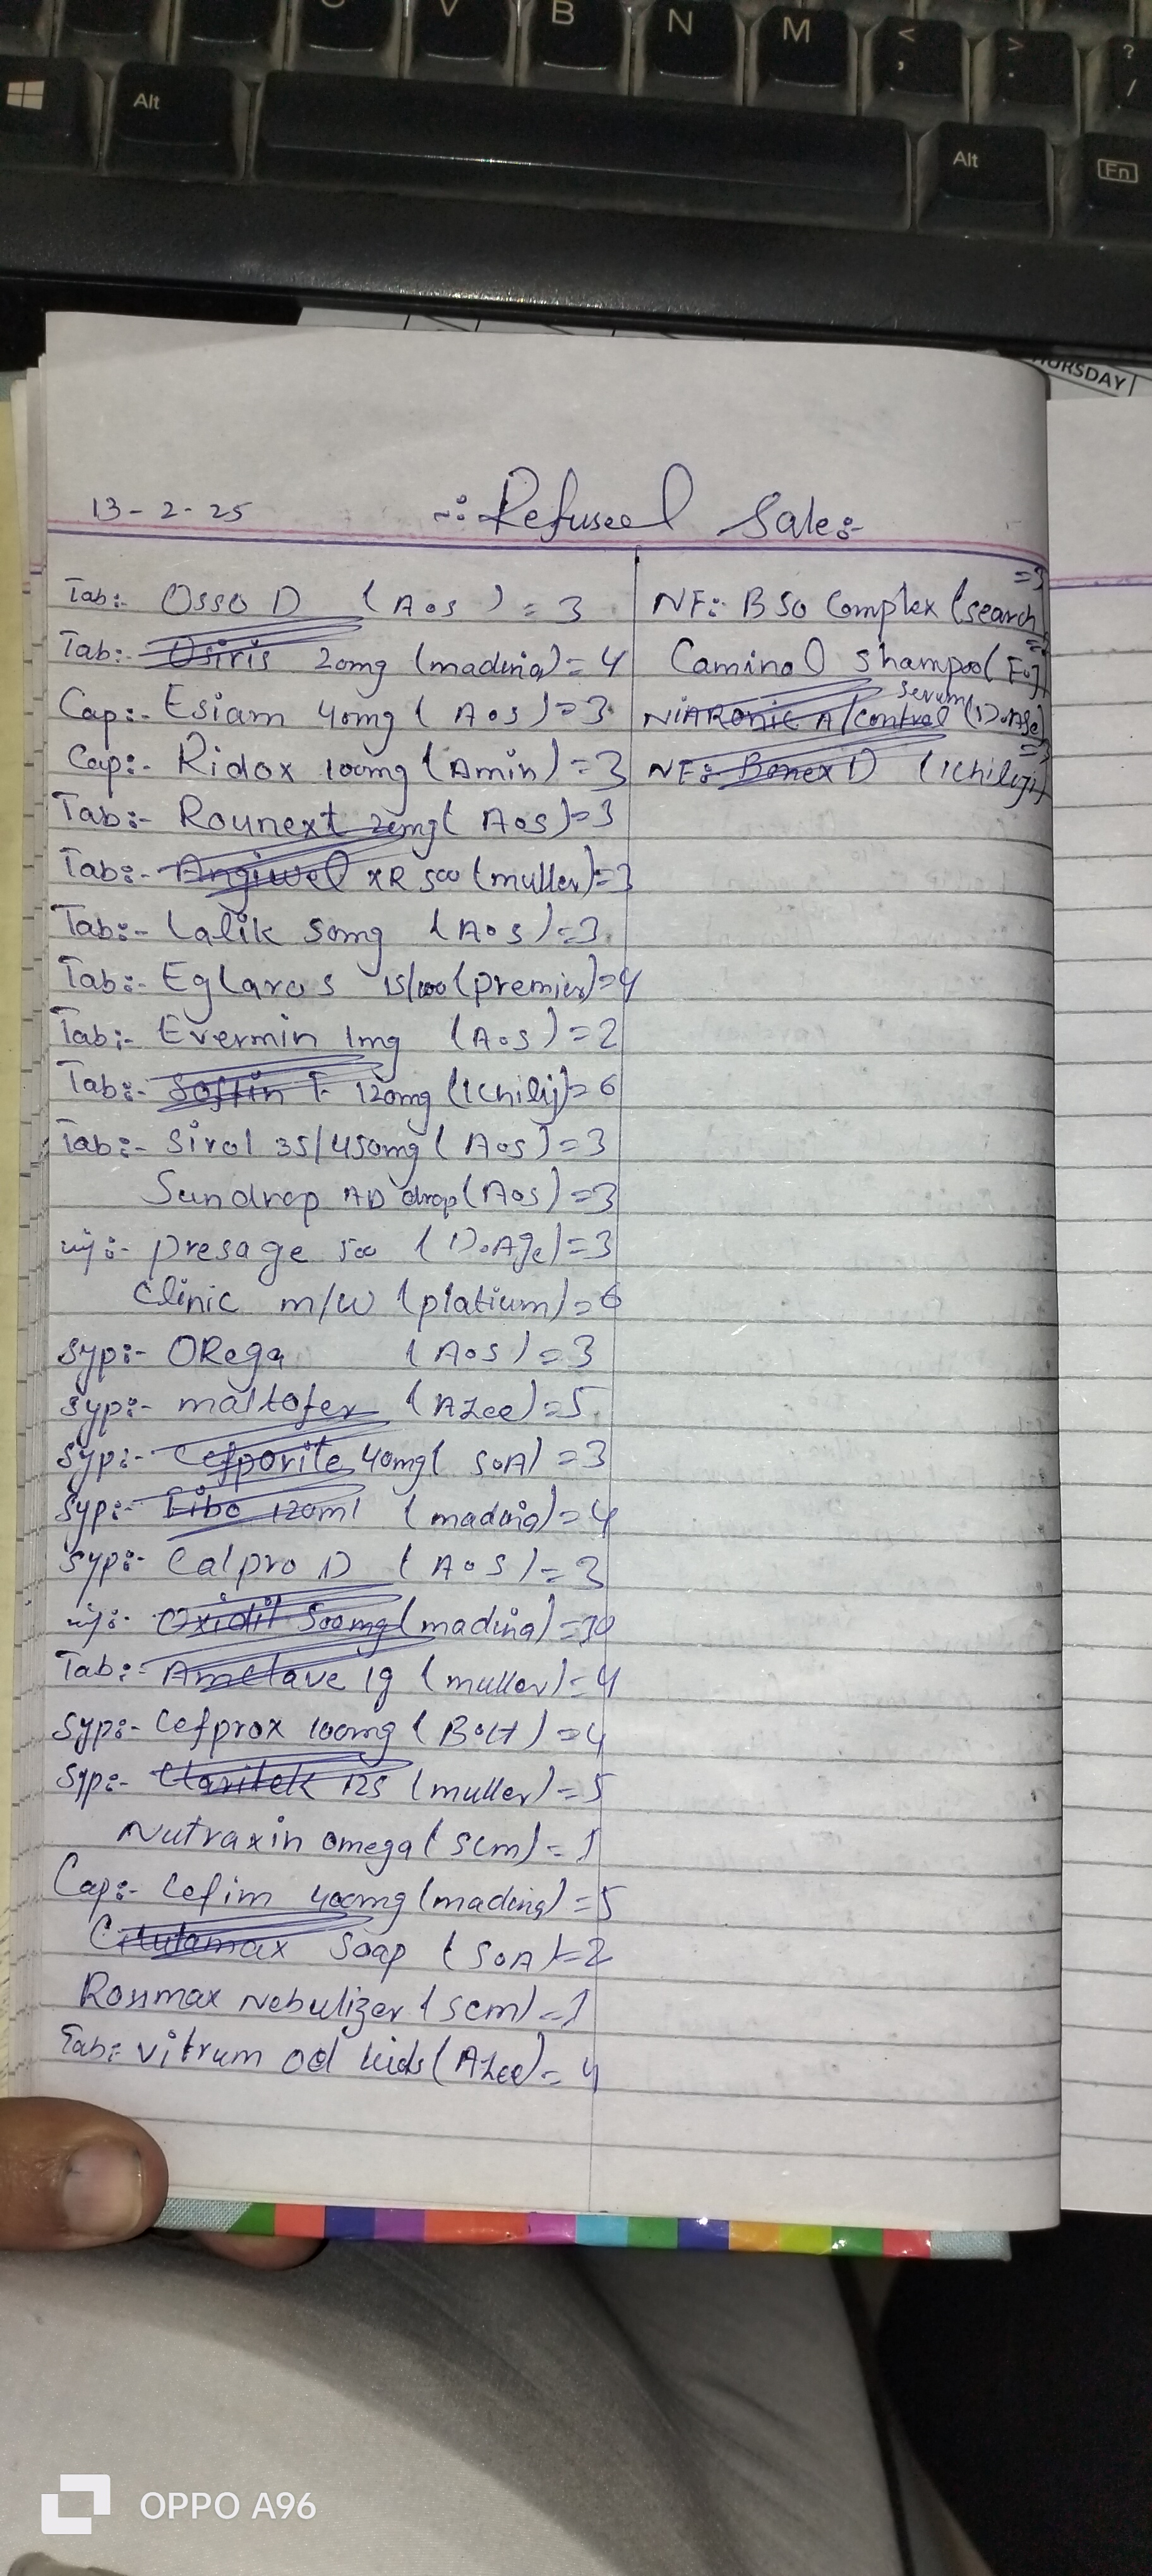 C V B N M < , > . ? /
Alt Alt Fn
THURSDAY
13-2-25 Refused Sale:-
Tab:- Osso D (A.o.s) = 3
Tab:- Osiris 20mg (madina) = 4
Cap:- Esiam 40mg (A.o.s) = 3
Cap:- Ridox 100mg (Amin) = 3
Tab:- Rounext 20mg (A.o.s) = 3
Tab:- Angiwel XR 500 (muller) = 3
Tab:- Lalik 50mg (A.o.s) = 3
Tab:- Eglaros 15/100 (premier) = 4
Tab:- Evermin 1mg (A.o.s) = 2
Tab:- 120mg (Ichiliji) = 6
Tab:- Sirol 35/450mg (A.o.s) = 3
Sundrop AD drop (A.o.s) = 3
inj:- presage 500 (D.Age) = 3
Clinic m/w (platium) = 6
Syp:- ORega (A.o.s) = 3
Syp:- maltofer (AZee) = 5
Syp:- Cefporite 40mg (S.A) = 3
Syp:- 120ml (madina) = 4
Syp:- Calpro D (A.o.s) = 3
inj:- Oxidil 500mg (madina) = 30
Tab:- Amclave 1g (muller) = 4
Syp:- Cefprox 100mg (B.H) = 4
Syp:- Claritek 125 (muller) = 5
Nutraxin omega (scm) = 1
Cap:- Cefim 400mg (madina) = 5
Glutamax Soap (S.A) = 2
Rossmax Nebulizer (scm) = 1
Tab: vitrum od kids (AZee) = 4
= 3
NF:- B 50 Complex (search
Caminol shampoo
Serum
A/Control (D.Age)
= 3
NF:- Bonex D (Ichiliji)
OPPO A96